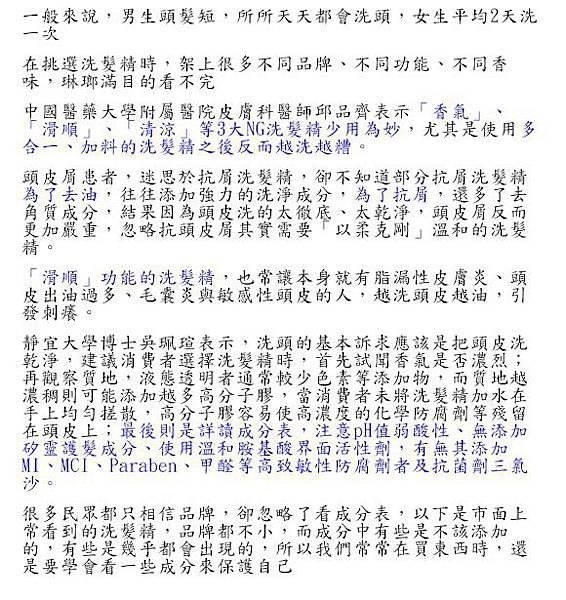 一般來說，男生頭髮短，所所天天都會洗頭，女生平均2天洗
一次
在挑選洗髮精時，架上很多不同品牌、不同功能、不同香
味，琳瑯滿目的看不完
中國醫藥大學附屬醫院皮膚科醫師邱品齊表示「香氣」、
「滑順」、「清涼」等3大NG洗髮精少用為妙，尤其是使用多
合一、加料的洗髮精之後反而越洗越糟。
頭皮屑患者，迷思於抗屑洗髮精，卻不知道部分抗屑洗髮精
為了去油，往往添加強力的洗淨成分，為了抗屑，還多了去
角質成分，結果因為頭皮洗的太徹底、太乾淨，頭皮屑反而
更加嚴重，忽略抗頭皮屑其實需要「以柔克剛」溫和的洗髮
精。
「滑順」功能的洗髮精，也常讓本身就有脂漏性皮膚炎、頭
皮出油過多、毛囊炎與敏感性頭皮的人，越洗頭皮越油，引
發刺癢。
靜宜大學博士吳珮瑄表示，洗頭的基本訴求應該是把頭皮洗
乾淨，建議消費者選擇洗髮精時，首先試聞香氣是否濃烈；
再觀察質地，液態透明者通常較少色素等添加物，而質地越
濃稠則可能添加越多高分子膠，當消費者未將洗髮精加水在
手上均勻搓散，高分子膠容易使高濃度的化學防腐劑等殘留
在頭皮上；最後則是詳讀成分表，注意pH值弱酸性、無添加
矽靈護髮成分、使用溫和胺基酸界面活性劑，有無其添加
MI、MCI、Paraben、甲醛等高致敏性防腐劑者及抗菌劑三氯
沙。
很多民眾都只相信品牌，卻忽略了看成分表，以下是市面上
常看到的洗髮精，品牌都不小，而成分中有些是不該添加
的，有些是幾乎都會出現的，所以我們常常在買東西時，還
是要學會看一些成分來保護自己